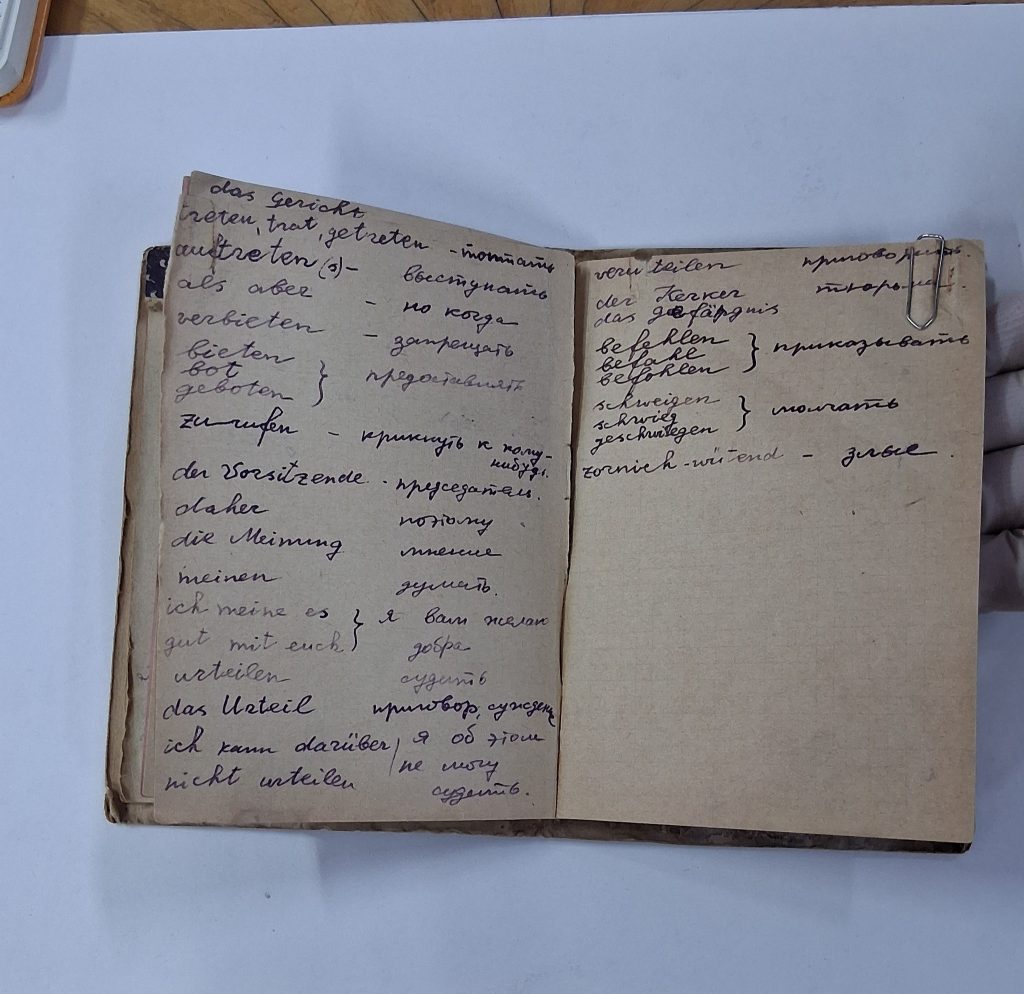 das Gericht
treten, trat, getreten - топтать
auftreten (s) - выступать
als aber - но когда
verbieten - запрещать
bieten
bot } предоставлять
geboten
zu rufen - крикнуть к кому-
нибудь.
der Vorsitzende - председатель.
daher поэтому
die Meinung мнение
meinen думать.
ich meine es } я вам желаю
gut mit euch } добра
urteilen судить
das Urteil приговор, сужден
ich kann darüber / я об этом
nicht urteilen / не могу
судить.
verurteilen приговорить.
der Kerker тюрьма.
das gefängnis
befehlen
befahl } приказывать
befohlen
schweigen
schwieg } молчать
geschwiegen
zornich - wütend - злые.